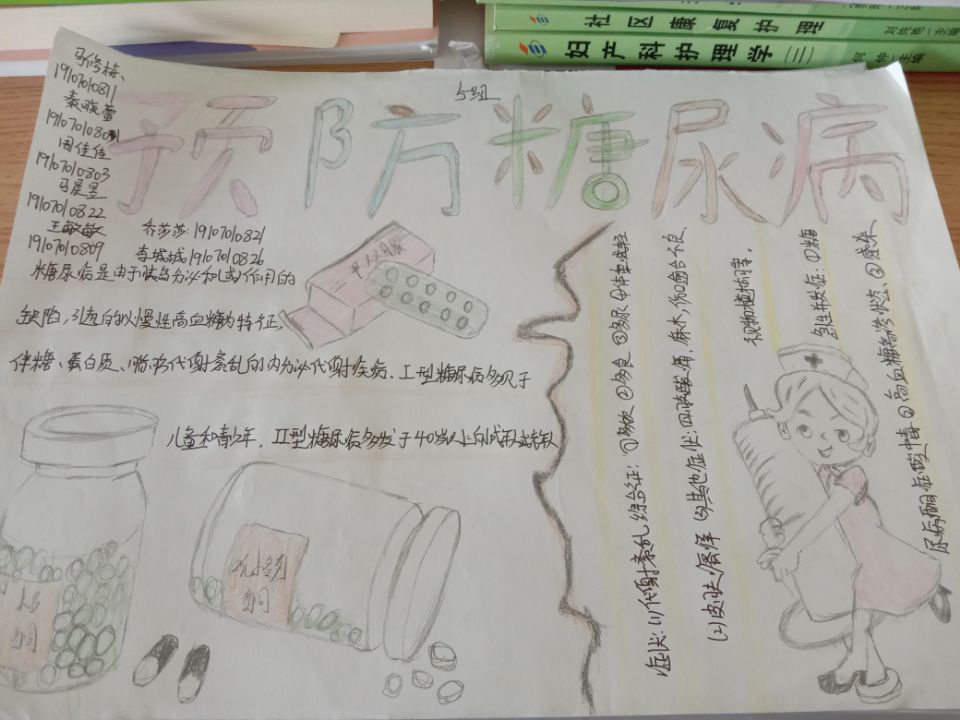 社区康复护理
妇产科护理学(三)
5组
预防糖尿病
19107010811
秦晓蕾
周佳佳
19107010803
马晨昱
19107010822
王敏敏
19107010809
乔莎莎:19107010821
19107010826
糖尿病是由于胰岛分泌和(或)作用的
缺陷,引起的以慢性高血糖为特征,
伴糖、蛋白质、脂肪代谢紊乱的内分泌代谢疾病.I型糖尿病多见于
儿童和青少年.II型糖尿病多发于40岁以上的成年
症状:(1)代谢紊乱综合征:①多饮②多食③多尿④体重减轻
(2)皮肤瘙痒(3)其他症状:四肢酸痛、麻木,伤口愈合不良、
视物模糊等.
急性并发症:①糖
尿病酮症酸中毒②高血糖高渗状态、③感染